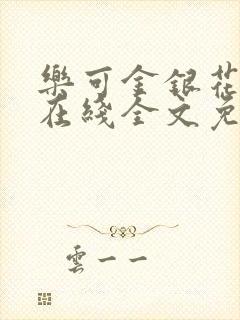 樂可金銀花
在綫全文免
雲一一